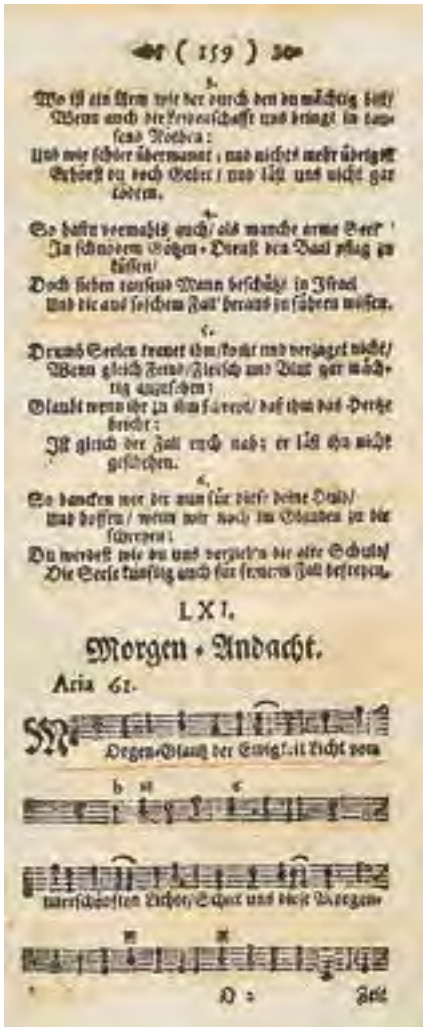 ( 159 )
3.
Wo ist ein Arm wie der durch den du mächtig bist/
Wenn auch die leidenschafft uns bringt in tau-
send Nöthen:
Und wir schier übermannt; und nichts mehr übrig ist
Erhörst du doch Gebet; und läst uns nicht gar
tödten.
4.
So hastu vormahls auch/ als manche arme Seel'
In schnödem Götzen-Dienst den Baal pflag zu
küssen/
Doch sieben tausend Mann beschützt in Israel
Und die aus solchem Fall heraus zu führen wissen.
5.
Drumb Seelen trauet ihm/ kommt und verzaget nicht/
Wann gleich Feind/Fleisch und Blut gar mäch-
tig anzusehen:
Glaubt wenn ihr zu ihm schreyt/ daß ihm das Hertze
bricht:
Ist gleich der Fall euch nah; er läst ihn nicht
geschehen.
6.
So dancken wir dir nun für diese deine Huld/
Und hoffen/ wenn wir noch im Glauben zu dir
schreyen:
Du werdest wie du uns verziehen die alte Schuld/
Die Seele künftig auch für fernerm Fall befreyen.
LXI.
Morgen-Andacht.
Aria 61.
MOrgen-Glantz der Ewigkeit Licht vom
unerschöpften Lichte/Schick uns diese Morgen-
Zeit